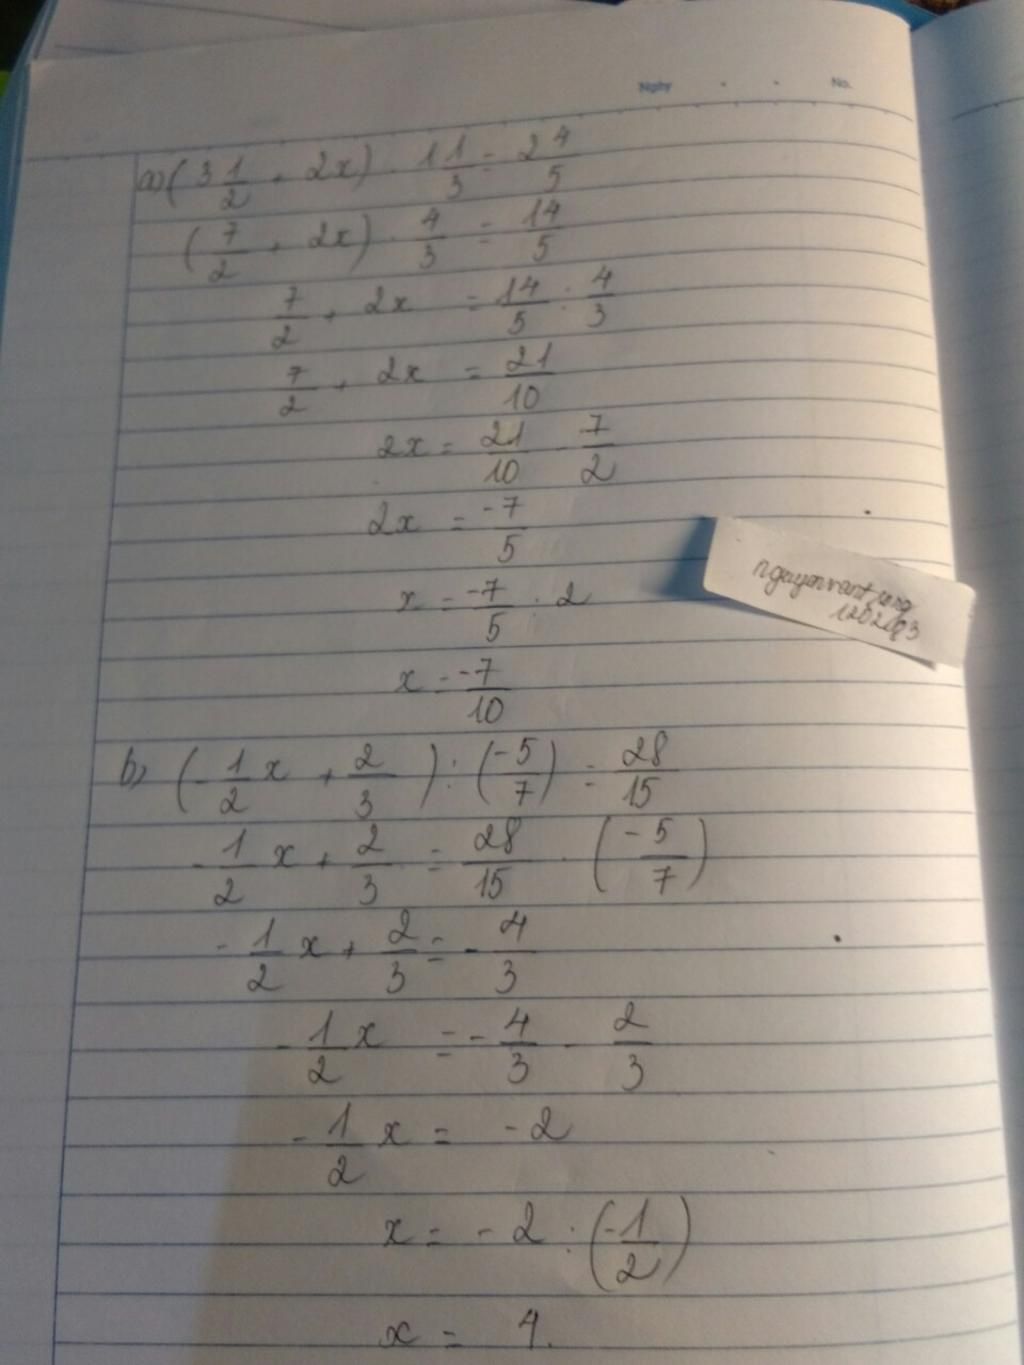 Ngày No.
a) (3 1/2 + 2x) . 1 1/3 = 2 4/5
(7/2 + 2x) . 4/3 = 14/5
7/2 + 2x = 14/5 : 4/3
7/2 + 2x = 21/10
2x = 21/10 - 7/2
2x = -7/5
x = -7/5 . 2
x = -7/10
b) (-1/2 x + 2/3) : (-5/7) = 28/15
-1/2 x + 2/3 = 28/15 . (-5/7)
-1/2 x + 2/3 = -4/3
-1/2 x = -4/3 - 2/3
-1/2 x = -2
x = -2 : (-1/2)
x = 4.